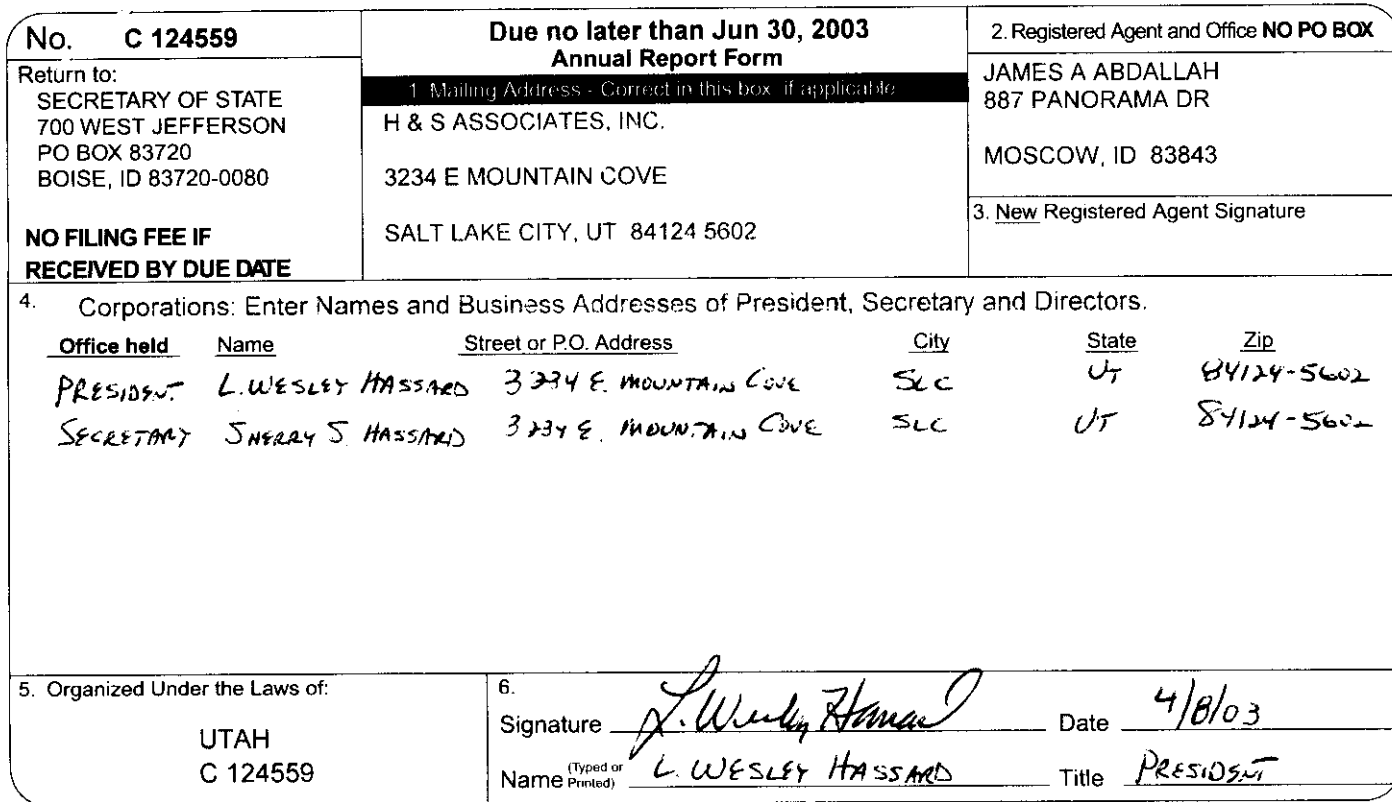 No. C 124559
Return to:
SECRETARY OF STATE
700 WEST JEFFERSON
PO BOX 83720
BOISE, ID 83720-0080
NO FILING FEE IF
RECEIVED BY DUE DATE
Due no later than Jun 30, 2003
Annual Report Form
1. Mailing Address - Correct in this box if applicable
H & S ASSOCIATES, INC.
3234 E MOUNTAIN COVE
SALT LAKE CITY, UT 84124 5602
2. Registered Agent and Office NO PO BOX
JAMES A ABDALLAH
887 PANORAMA DR
MOSCOW, ID 83843
3. New Registered Agent Signature
4. Corporations: Enter Names and Business Addresses of President, Secretary and Directors.
Office held Name Street or P.O. Address City State Zip
PRESIDENT L. WESLEY HASSARD 3234 E. MOUNTAIN COVE SLC UT 84124-5602
SECRETARY SHERRY S. HASSARD 3234 E. MOUNTAIN COVE SLC UT 84124-5602
5. Organized Under the Laws of:
UTAH
C 124559
6.
Signature L. Wesley Hassard Date 4/8/03
Name (Typed or Printed) L. WESLEY HASSARD Title PRESIDENT